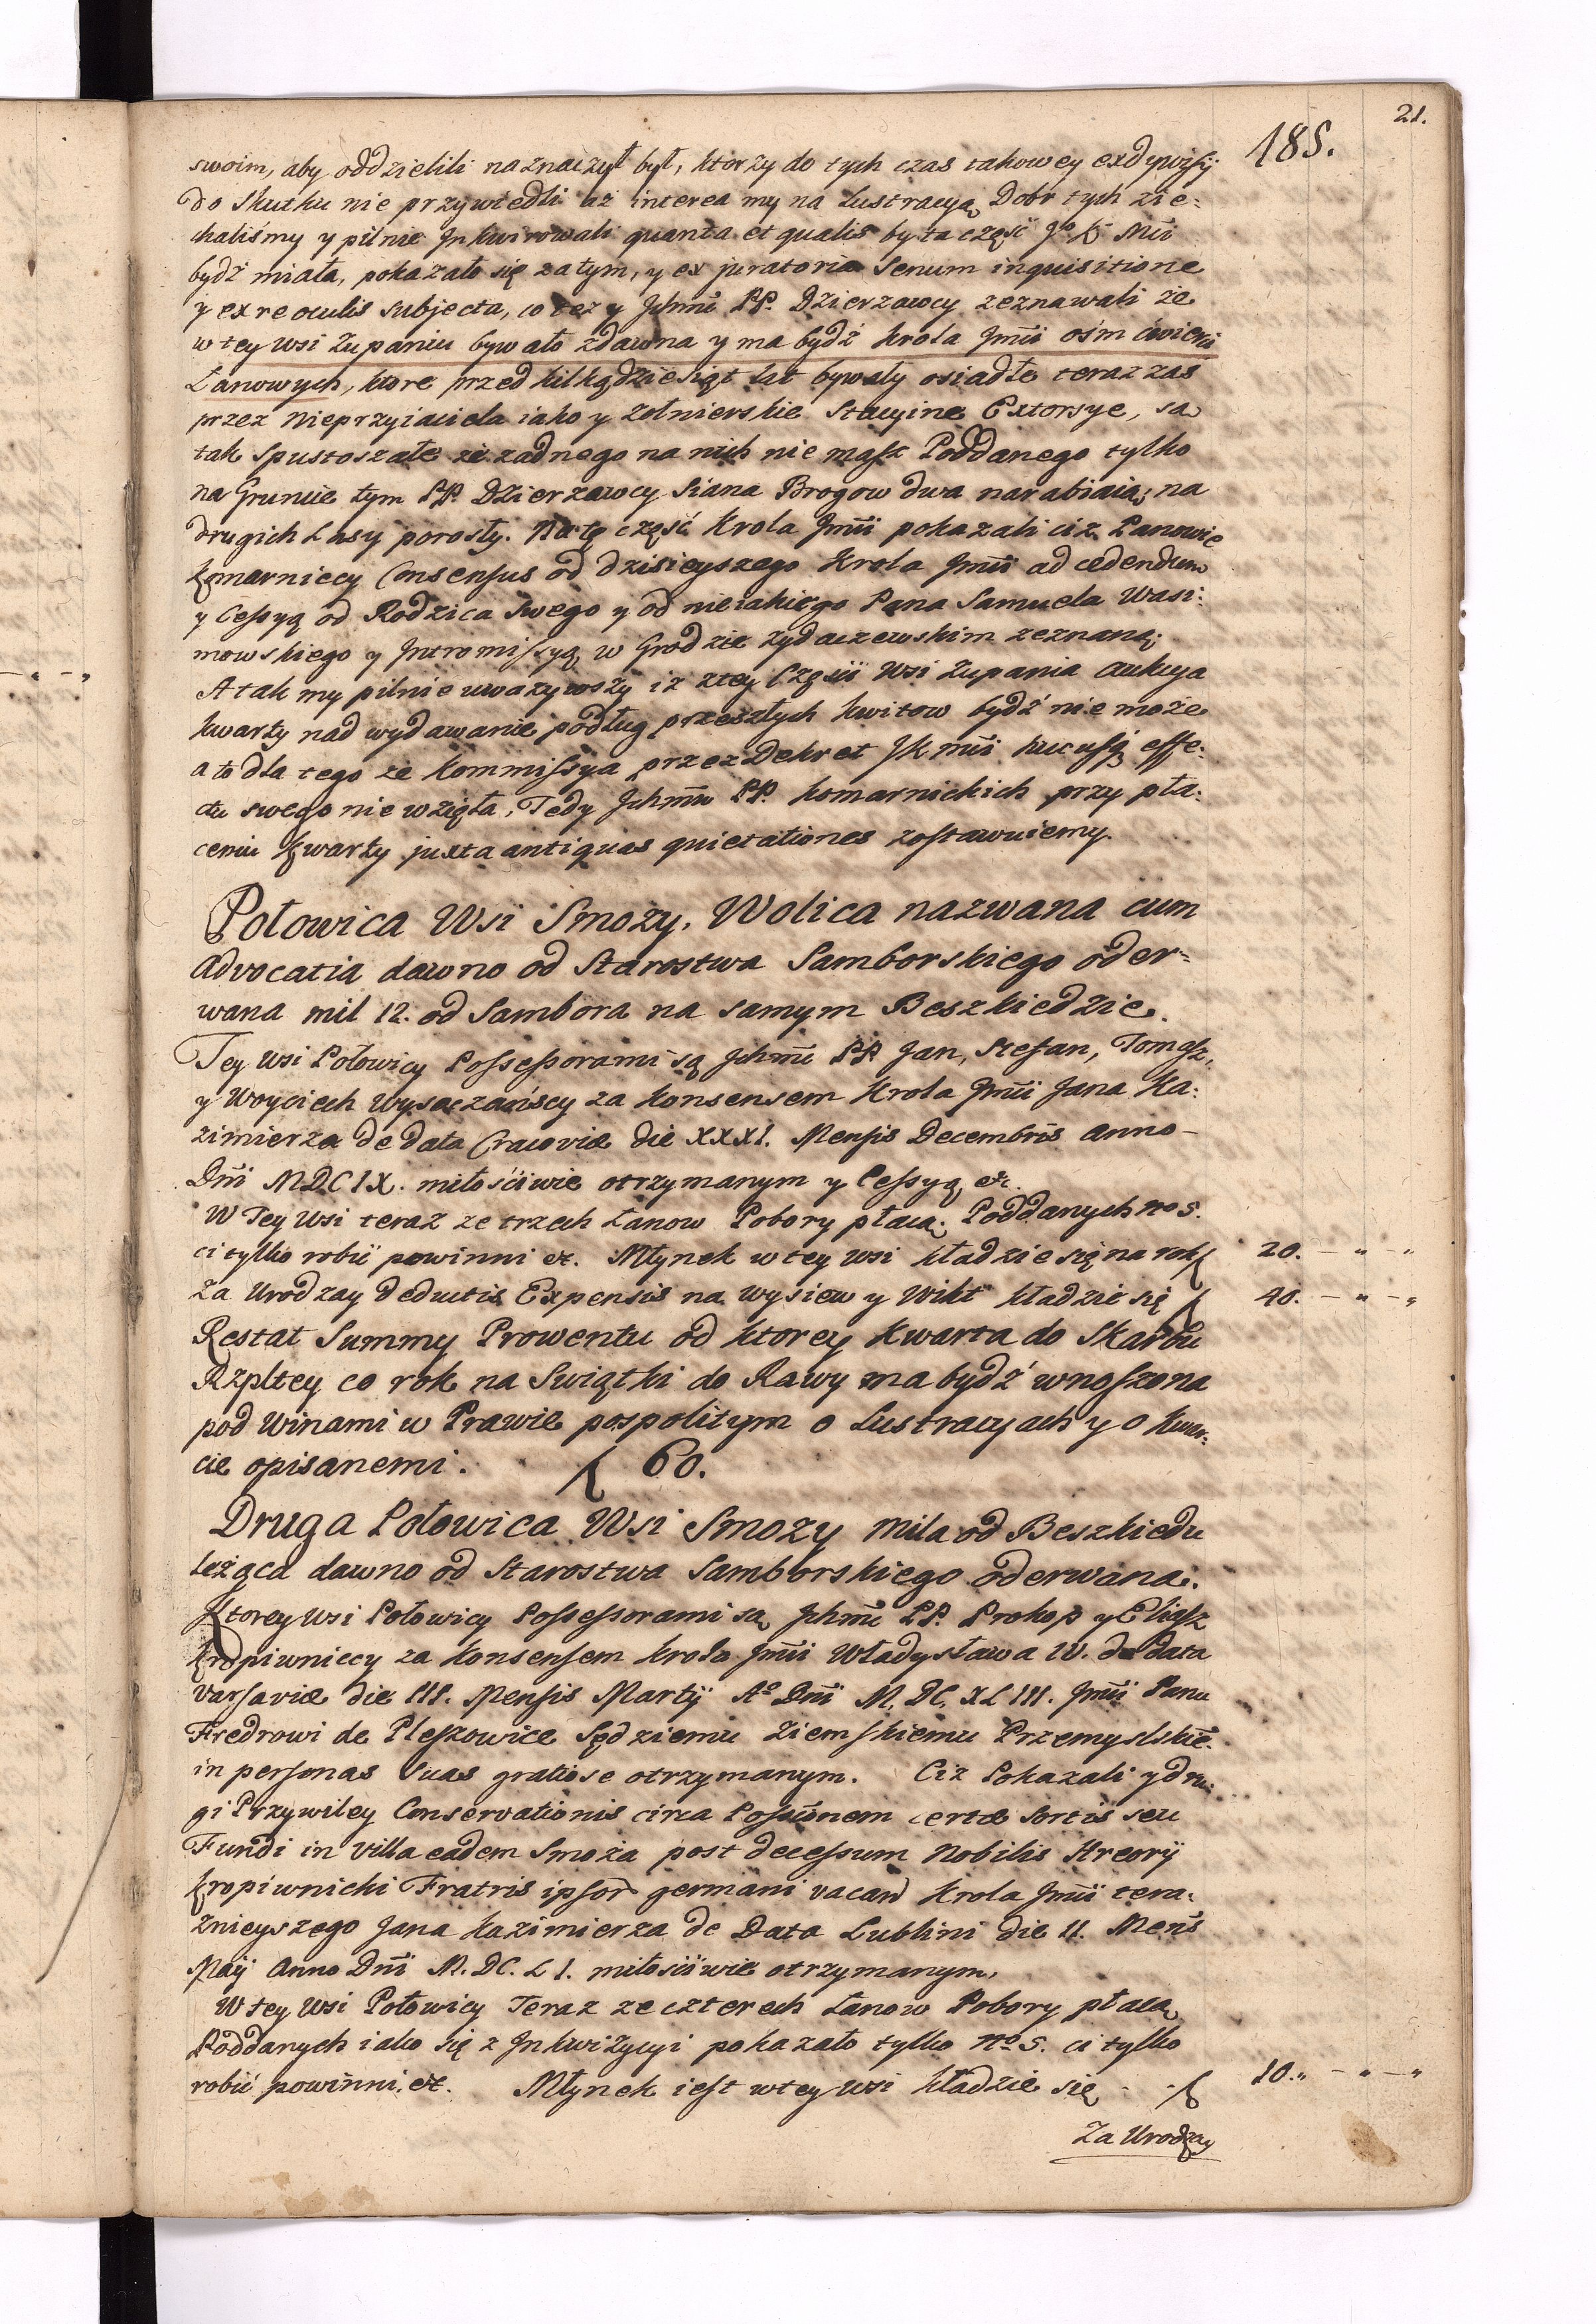 21.
185.
swoim, aby oddzielili naznaczył był, ktorzy do tych czas takowey exdywizÿi
do Skutku nie przywiedli aż interea my na Lustracyą Dobr tych zie:
chaliśmy y pilnie Jnkwirowali quanta et qualis byta część Jo K Mci
bydź miała, pokazało się zatym, y ex juratoria Senum inquisitione
y ex re oculis subjecta, co też y Jchmć PP. Dzierzawcy zeznawali że
w tey wsi Żupaniu bywało zdawna y ma bydź Krola Jmći ośm ćwierci
Łanowych, ktore przed kilkądziesiąt lat bywały osiadłe teraz zas
przez Nieprzyiaciela iako y Żołnierskie Stacyine Extorsye, są
tak Spustoszałe że żadnego na nich nie masz Poddanego tylko
na Gruncie tym PP. Dzierzawcy Siana Brogow dwa narabiaią; na
drugich Lasy porosły. Na tę część Krola Jmći pokazali ciż Panowie
Komarniccy Consensus od dzisieyszego Krola Jmći ad cedendum
y Cessyą od Rodzica Swego y od nieiakiego Pana Samuela Wasi:
mowskiego y Jntromissyą w Grodzie Żydaczewskim zeznaną;
A tak my pilnie uważywszy iż z tey Częsci Wsi Żupania aukcya
kwarty nad wydawanie podług przeszłych kwitow bydź nie może
a to dla tego że Kommissya przez Dekret JK Mci hucusq effe:
ctu swego nie wzięła, Tedy Jchmćw PP. Komarnickich przy pła:
ceniu Kwarty juxta antiquas quietationes zostawuiemy.
Połowica Wsi Smozy. Wolica nazwana cum
Advocatia dawno od Starostwa Samborskiego oder=
wana mil 12. od Sambora na samym Beszkiedzie.
Tey Wsi Połowicy Possessorami są Jchmć PP Jan, Stefan, Tomasz,
y Woyciech Wysoczańscy za Konsensem Krola Jmći Jana Ka:
zimierza de data Cracoviæ die XXXI. Mensis Decembris anno
Dni MDCIX. miłościwie otrzymanym y Cessyą etc.
W Tey Wsi teraz ze trzech Łanow Pobory płacą. Poddanych no 5.
ci tylko robić powinni etc. Młynek w tey wsi kładzie się na rok f 20. – " – "
Za Urodzay deductis Expensis na wysiew y Wikt kładzie się f 40. – " – "
Restat Summy Prowentu od ktorey Kwarta do Skarbu
Rzpltey co rok na Swiątki do Rawy ma bydź wnoszona
pod Winami w Prawie pospolitym o Lustracyach y o Kwar:
cie opisanemi. f 60.
Druga Połowica Wsi Smozy mila od Beszkiedu
leżąca dawno od Starostwa Samborskiego oderwana.
Ktorey Wsi Połowicy Possessorami są Jchmć PP. Prokop y Eliasz
Kropiwniccy za Konsensem Krola Jmći Władysława IV. de data
Varsaviæ die III. Mensis Martÿ Ao Dni M. DC. XLIII. Jmći Panu
Fredrowi de Pleszowice Sędziemu Ziemskiemu Przemyslskie.
in personas Suas gratiose otrzymanym. Ciż Pokazali y dru:
gi Przywiley Conservationis circa Possionem certæ Sortis seu
Fundi in Villa eadem Smoża post decessum Nobilis Hreorÿ
Kropiwnicki Fratris ipsor germani vacan Krola Jmći tera:
źnieyszego Jana Kazimierza de Data Lublini die 11. Mens
Maÿ Anno Dni M. DC. LI. miłościwie otrzymanym,
W tey Wsi Połowicy Teraz ze czterech Łanow Pobory płacą
Poddanych iako się z Jnkwizycyi pokazało tylko No 5. ci tylko
robić powinni. etc. Młynek iest w tey wsi kładzie się - - f 10. " – " – "
Za Urodzay